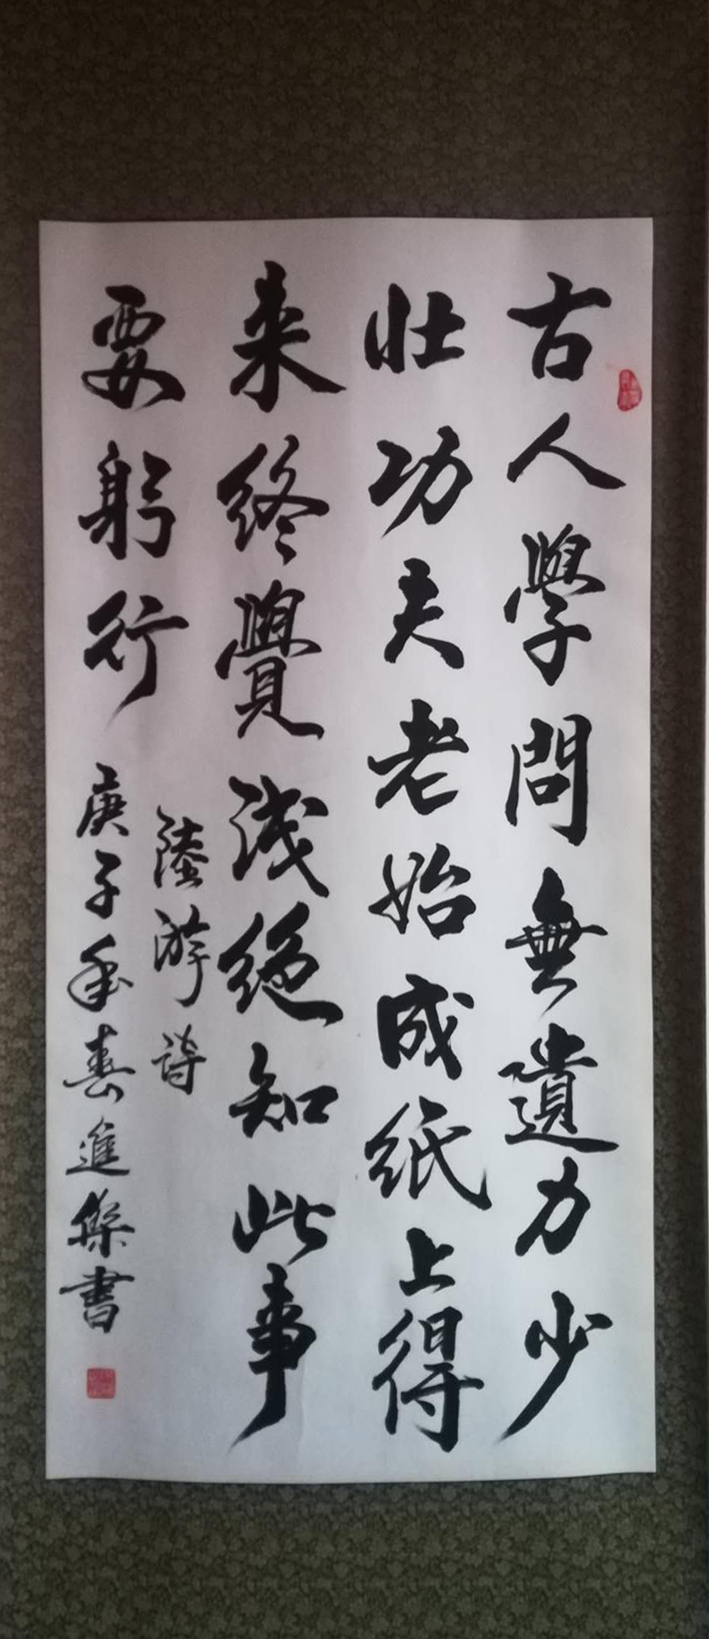 古人學問無遺力少
壯功夫老始成紙上得
来終覺淺絕知此事
要躬行
陸游詩
庚子年春進傑書